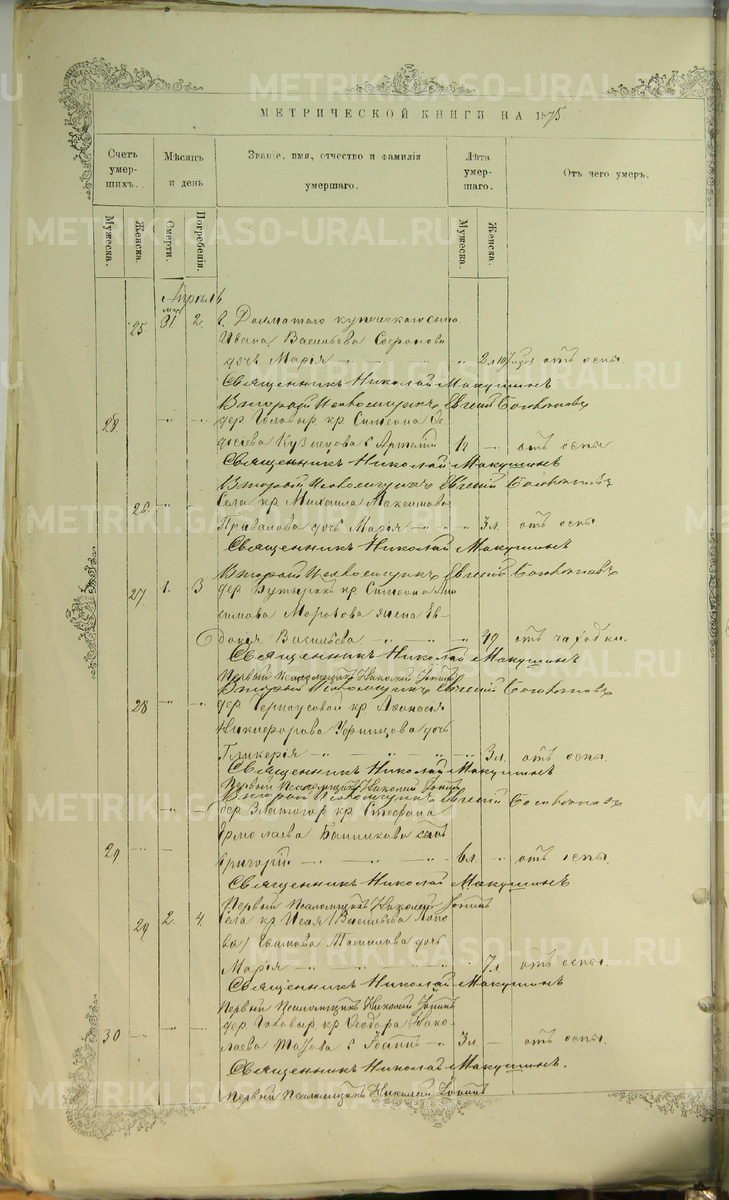 METRIKI.GASO-URAL.RU
МЕТРИЧЕСКОЙ КНИГИ НА 1875
Счетъ умер-шихъ.
Мѣсяцъ и день
Званіе, имя, отчество и фамилія умершаго.
Лѣта умер-шаго.
Отъ чего умеръ.
Мужеска.
Женска.
Смерти.
Погребенія.
Мужеска.
Женска.
Апрѣль
25. 31 2. г. Далматова купческаго сына
Ивана Васильева
дочь Марія отъ оспы.
Священникъ Николай Макушинъ
Второй Псаломщикъ Евгеній
28. дер кр. Симеона
Кузнецова с Артемій отъ оспы
Священникъ Николай Макушинъ
Второй Псаломщикъ Евгеній
Села кр Михаила Максимова
Привалова дочь Марія 3 л. отъ оспы.
Священникъ Николай Макушинъ
Второй Псаломщикъ Евгеній
27. 1. 3 дер кр Симеона
жена Ев-
докія Васильева отъ чахотки.
Священникъ Николай Макушинъ
Первый Псаломщикъ Николай
Второй Псаломщикъ Евгеній
28 дер Черноусовой кр Аѳанасія
Никифорова Уфимцова дочь
Гликерія 3 л. отъ оспы.
Священникъ Николай Макушинъ
Первый Псаломщикъ Николай
Второй Псаломщикъ Евгеній
дер Златогор кр Стефана
Ермолаева Банникова сынъ
29. Григорій 6 л. отъ оспы.
Священникъ Николай Макушинъ
Первый Псаломщикъ Николай
29. 2. 4. Села кр Исая Васильева
Томилова дочь
Марія 7 л отъ оспы.
Священникъ Николай Макушинъ
Первый Псаломщикъ Николай
30 дер кр Ѳеодора Нико-
лаева с Іоаннъ 3 л. отъ оспы.
Священникъ Николай Макушинъ.
Первый Псаломщикъ Николай